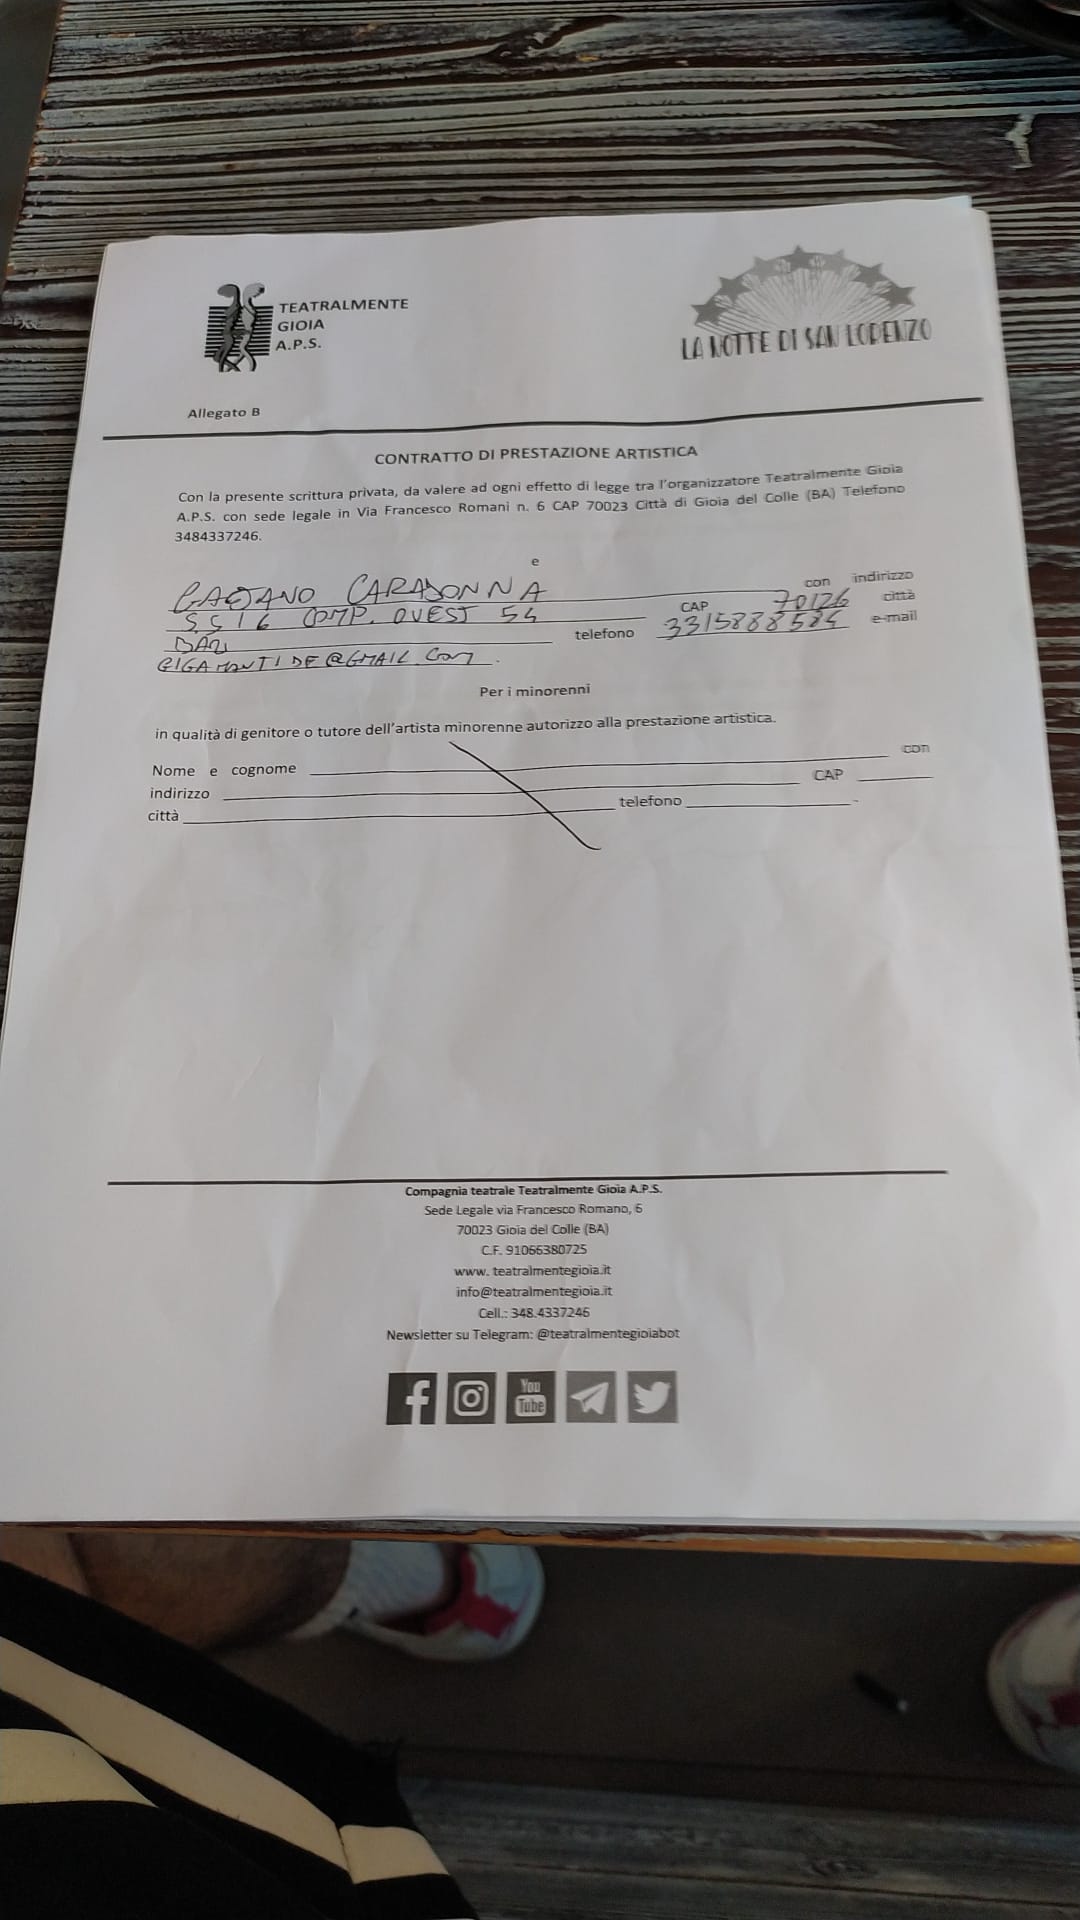 TEATRALMENTE
GIOIA
A.P.S.
LA NOTTE DI SAN LORENZO
Allegato B
CONTRATTO DI PRESTAZIONE ARTISTICA
Con la presente scrittura privata, da valere ad ogni effetto di legge tra l'organizzatore Teatralmente Gioia
A.P.S. con sede legale in Via Francesco Romani n. 6 CAP 70023 Città di Gioia del Colle (BA) Telefono
3484337246.
e
GAETANO CARADONNA con indirizzo
SS16 COMP. OVEST 54 CAP 70126 città
BARI telefono 3315888584 e-mail
GIGAMONTIDE@GMAIL.COM.
Per i minorenni
in qualità di genitore o tutore dell'artista minorenne autorizzo alla prestazione artistica.
Nome e cognome con
indirizzo CAP
città telefono .
Compagnia teatrale Teatralmente Gioia A.P.S.
Sede Legale via Francesco Romano, 6
70023 Gioia del Colle (BA)
C.F. 91066380725
www. teatralmentegioia.it
info@teatralmentegioia.it
Cell.: 348.4337246
Newsletter su Telegram: @teatralmentegioiabot
You
Tube